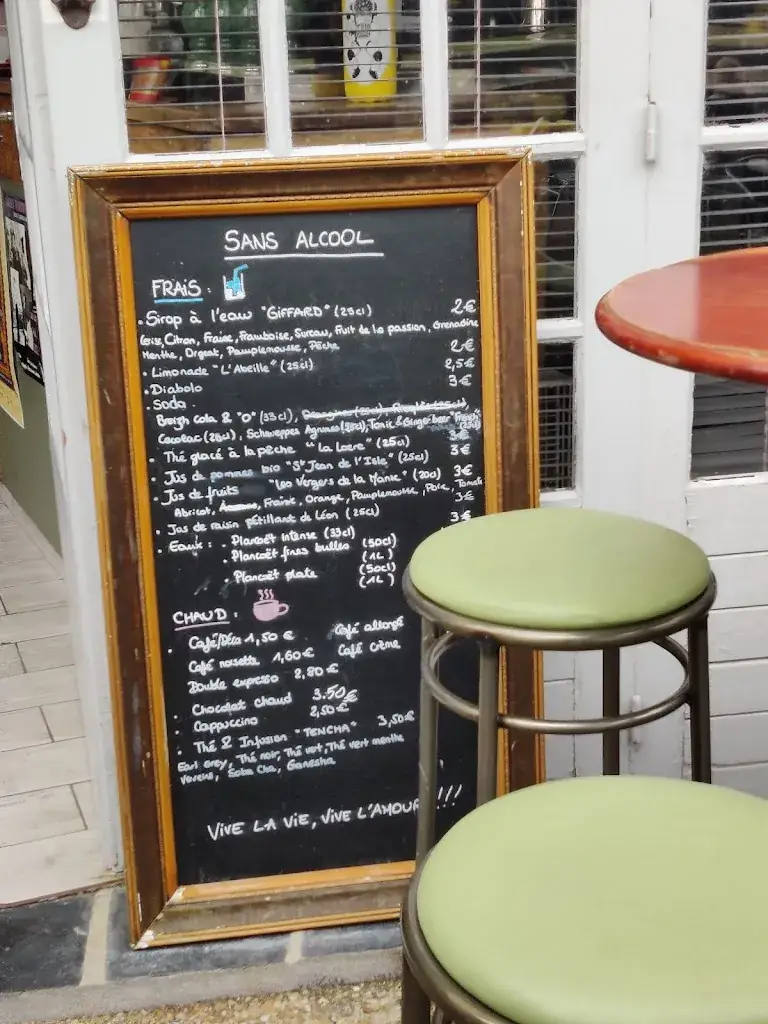 SANS ALCOOL
FRAIS :
• Sirop à l'eau "GIFFARD" (25cl) 2€
Cerise, Citron, Fraise, Framboise, Sureau, Fruit de la passion, Grenadine
Menthe, Orgeat, Pamplemousse, Pêche 2€
• Limonade "L'Abeille" (25cl) 2,5€
• Diabolo 3€
• Soda
Breizh Cola & "0" (33cl), Orangina (25cl),
Cacolac (28cl), Schweppes Agrumes (25cl), Tonic & Ginger beer "French" (25cl)
• Thé glacé à la pêche "La Loere" (25cl) 3€
• Jus de pommes bio "St Jean de l'Isle" (25cl) 3€
• Jus de fruits "Les Vergers de la Manse" (20cl) 3€
Abricot, Ananas, Fraise, Orange, Pamplemousse, Poire, Tomate
• Jus de raisin pétillant de Léon (25cl) 3€
• Eaux : • Plancoët intense (33cl) 3€
• Plancoët fines bulles (50cl)
(1L)
• Plancoët plate (50cl)
(1L)
CHAUD :
• Café/Déca 1,50 € Café allongé
Café noisette 1,60€ Café crème
Double expresso 2,80€
• Chocolat chaud 3.50€
• Cappuccino 2,50€
• Thé & Infusion "TENCHA" 3,50€
Earl Grey, Thé noir, Thé vert, Thé vert menthe
Verveine, Eoba Cha, Ganesha
VIVE LA VIE, VIVE L'AMOUR !!!